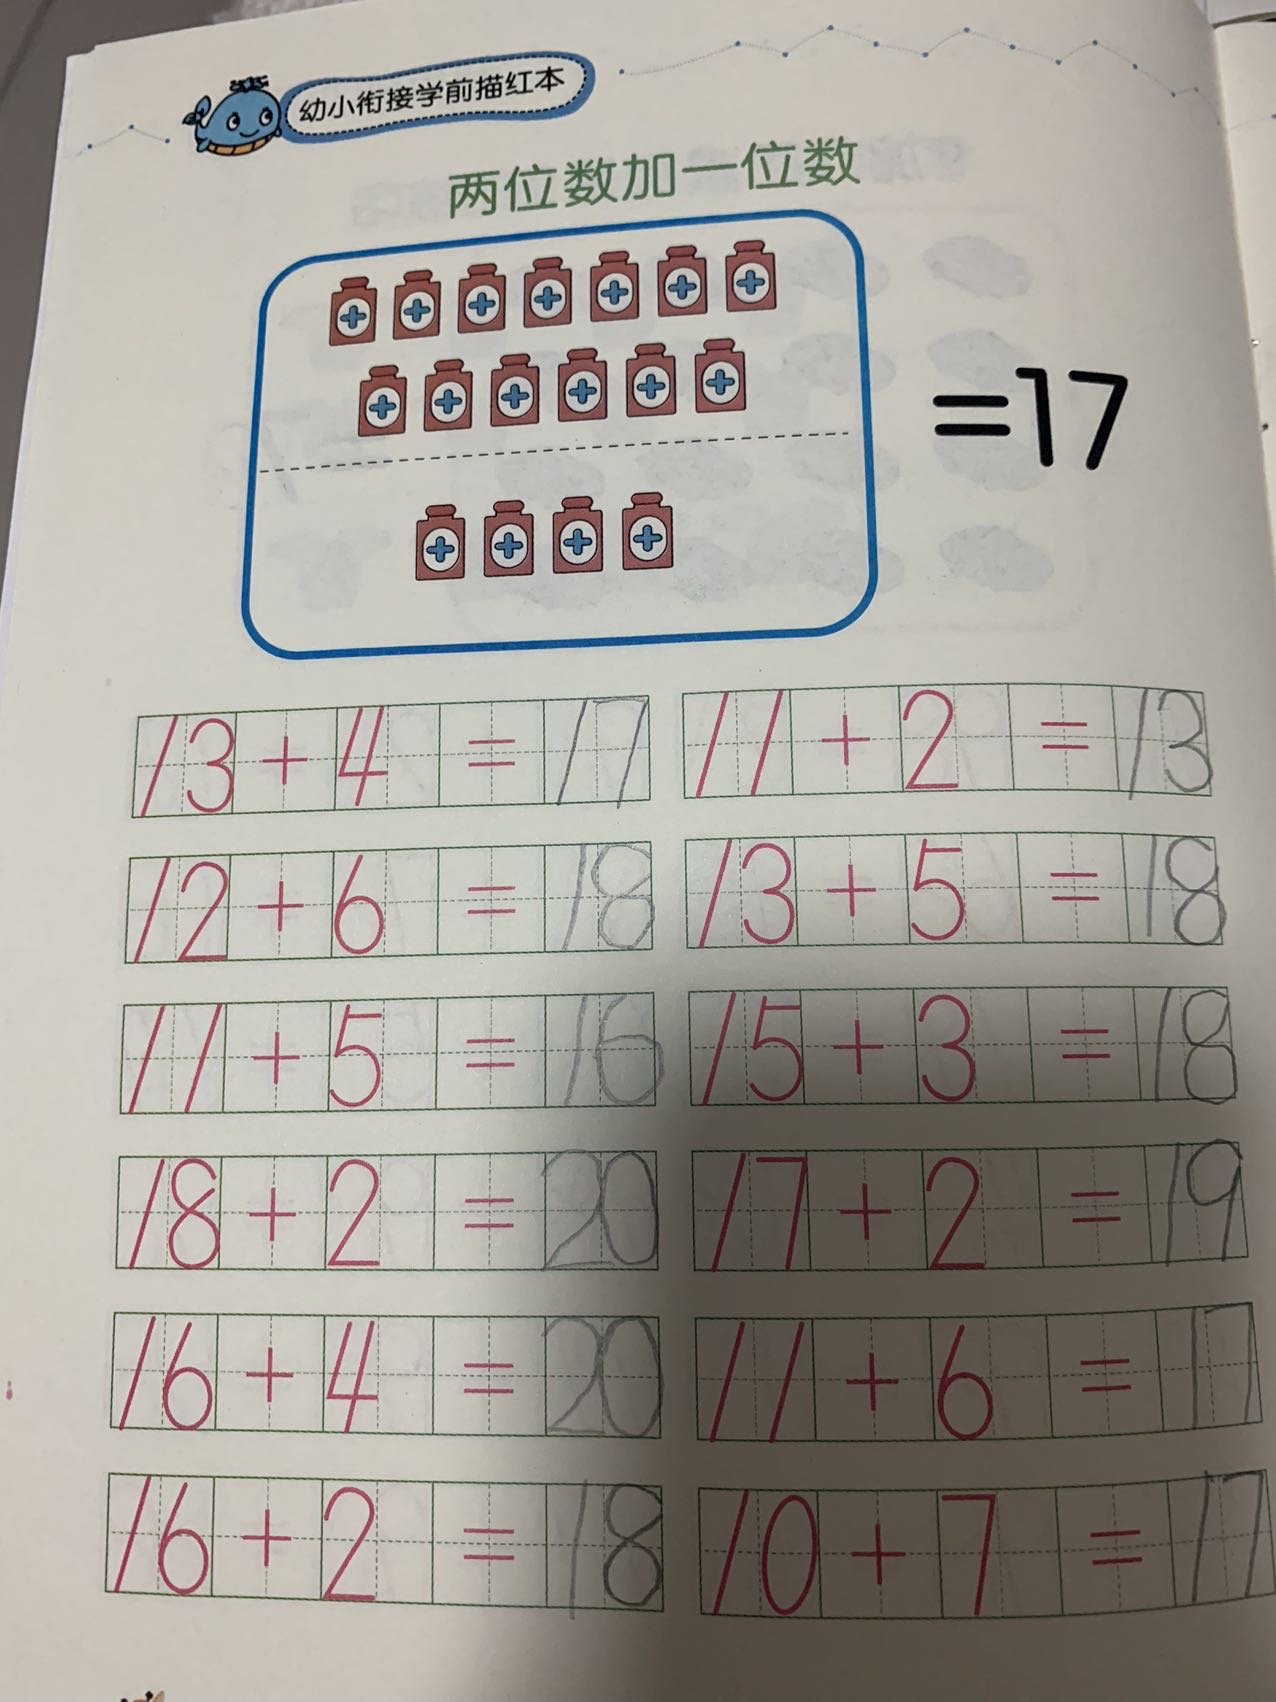 幼小衔接学前描红本
两位数加一位数
=17
13+4=17 11+2=13
12+6=18 13+5=18
11+5=16 15+3=18
18+2=20 17+2=19
16+4=20 11+6=17
16+2=18 10+7=17